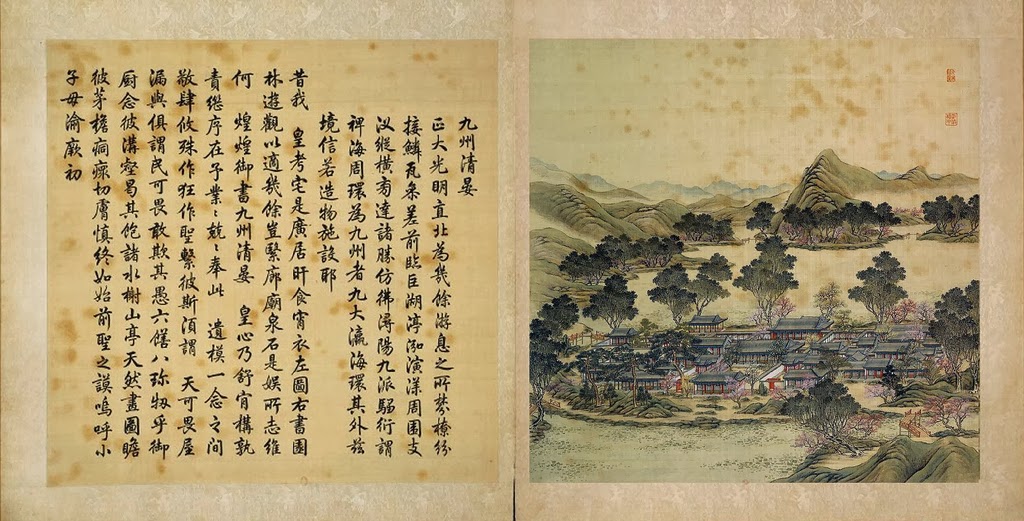 九州清晏
正大光明直北為幾餘游息之所棼橑紛
接鱗瓦參差前臨巨湖渟泓演漾周圍支
汊縱橫旁達諸勝仿彿潯陽九派騶衍謂
裨海周環為九州者九大瀛海環其外兹
境信若造物施設耶
昔我 皇考宅是廣居旰食宵衣左圖右書園
林遊觀以適幾餘豈繄廊廟泉石是娛所志維
何 煌煌御書九州清晏 皇心乃舒肯構孰
責繼序在予業〻兢〻奉此 遺模一念之間
敬肆攸殊作狂作聖繫彼斯須謂 天可畏屋
漏與俱謂民可畏敢欺其愚六膳八珍牣乎御
廚念彼溝壑曷其飽諸水榭山亭天然畫圖瞻
彼茅檐痌瘝切膚慎終如始前聖之謨嗚呼小
子毋渝厥初